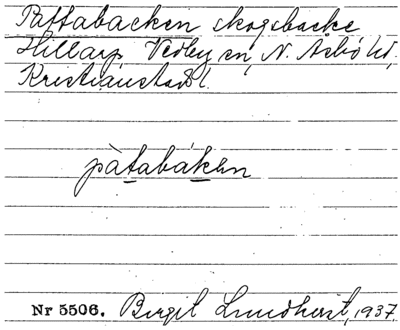 Pattabacken skogsbacke
Hillarp Vedby sn, N. Åsbo hd,
Kristianstad l.
pàtabákεn
Nr 5506. Birgit Lundkvist, 1937.